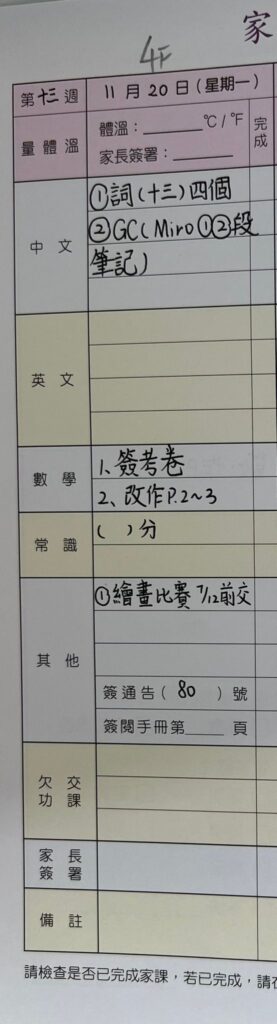 家
4F
第十三週 11月20日(星期一)
量體溫 體溫：______℃/℉ 完成
家長簽署：______
中文 ①詞(十三)四個
②GC(Miro①②段
筆記)
英文
數學 1、簽考卷
2、改作P.2~3
常識 ( )分
其他 ①繪畫比賽 7/12前交
簽通告( 80 )號
簽閱手冊第____頁
欠交
功課
家長
簽署
備註
請檢查是否已完成家課，若已完成，請在